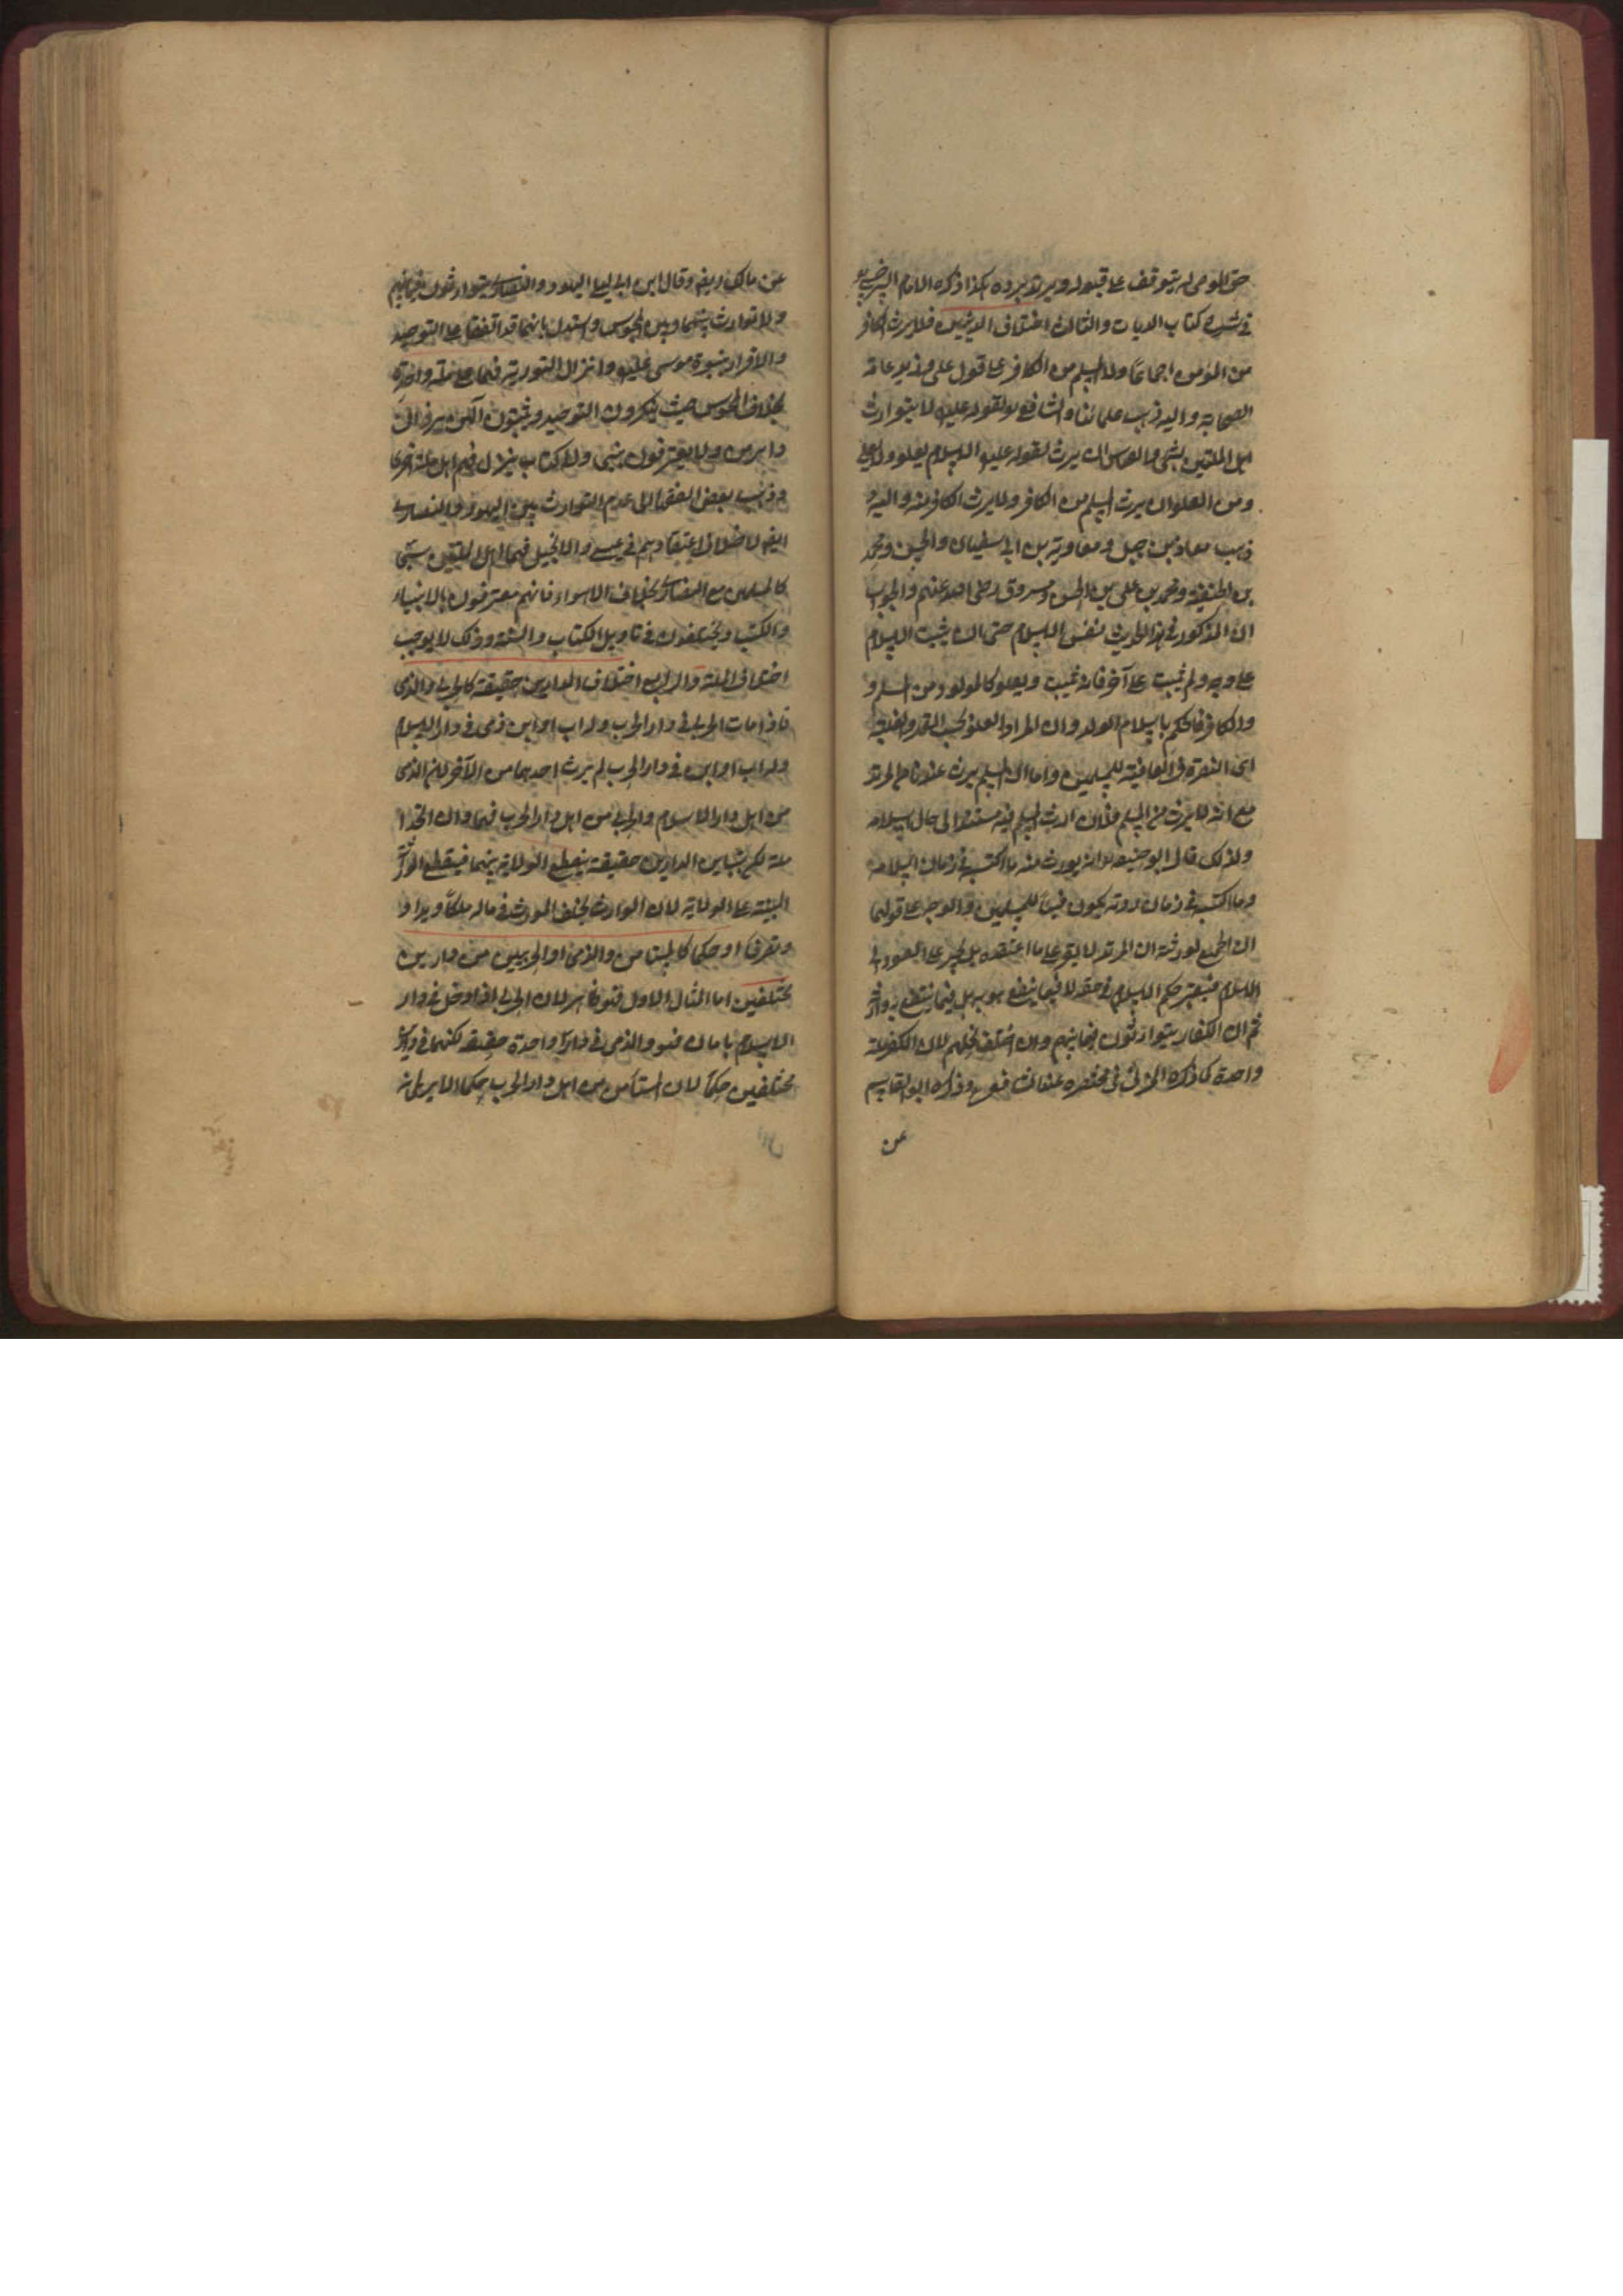 حق الموصى له يتوقف على قبوله ويرتد برده هكذا ذكره الامام السرخسي
في شرح كتاب الديات والثالث اختلاف الدينين فلا يرث الكافر
من المؤمن اجماعا ولا المسلم من الكافر على قول علي وزيد وعامة
الصحابة واليه ذهب علمائنا والشافعي لقوله عليه لا يتوارث
اهل الملتين بشيء والقياس ان يرث لقوله عليه الاسلام يعلو ولا يعلى
ومن العلو ان يرث المسلم من الكافر ولا يرث الكافر منه واليه
ذهب معاذ بن جبل ومعاوية بن ابي سفيان والحسن ومحمد
بن الحنفية ومحمد بن علي بن الحسين ومسروق رضى الله عنهم والجواب
ان المذكور في هذا الحديث نفس الاسلام حتى ان يثبت الاسلام
على وجه ولم يثبت على آخر فانه يثبت ويعلو كالمولود من المسلم و
والكافر فانحكم باسلام الولد وان المراد العلو بحسب الحجة او بحسب القهر والغلبة
اى النصرة في العاقبة للمسلمين واما ان المسلم يرث عندنا من المرتد
مع انه لا يرث من المسلم فلأن ارث المسلم منه مستند الى حال اسلامه
ولذلك قال ابو حنيفة انه يورث منه ما اكتسبه في زمان اسلامه
وما اكتسبه في زمان ردته يكون فيئا للمسلمين والوجه على قولهما
ان الجميع لورثته ان المرتد لا يقر على ما اعتقده بل يجبر على العود الى
الاسلام فيعتبر حكم الاسلام في حقه لا فيما ينتفع هو به بل فيما ينتفع به وارثه
ثم ان الكفار يتوارثون فيما بينهم وان اختلف نحلهم لان الكفر ملة
واحدة كما ذكره المزني في مختصره عن الشافعي وذكره ابو القاسم
عن
عن مالك ايضا وقال ابن ابي ليلى اليهود والنصارى يتوارثون فيما بينهم
ولا توارث بينهما وبين المجوس واستدل بانهما قد اتفقا على التوحيد
والاقرار بنبوة موسى عليه وانزال التورية فهما على ملة واحدة
بخلاف المجوس حيث ينكرون التوحيد ويثبتون الهين يزدان
واهرمن ولا يعترفون بنبي ولا كتاب ينزل فهم اهل ملة اخرى
وذهب بعض الفقهاء الى عدم التوارث بين اليهود والنصارى
ايضا لاختلاف اعتقادهم في عيسى والانجيل فهما اهل الملتين شتى
كالمسلمين مع النصارى بخلاف الاهواء فانهم معترفون بالانبياء
والكتب ويختلفون في تاويل الكتاب والسنة وذلك لا يوجب
اختلاف الملة والرابع اختلاف الدارين حقيقة كالحربي والذمى
فاذا مات الحربي في دار الحرب وله اب او ابن ذمى في دار الاسلام
وله اب او ابن في دار الحرب لم يرث احدهما من الآخر لان الذمى
من اهل دار الاسلام والحربي من اهل دار الحرب فهما وان اتحدا
ملة لكن بتباين الدارين حقيقة ينقطع الولاية بينهما فينقطع الوراثة
المبنية على الولاية لان الوارث يخلف المورث في ماله ملكا ويدا و
وتصرفا او حكما كالمستامن والذمى او الحربيين من دارين
مختلفين اما المثال الاول فهو ظاهر لان الحربي اذا دخل في دار
الاسلام بامان فهو والذمى في دار واحدة حقيقة لكنهما في دارين
مختلفين حكما لان المستأمن من اهل دار الحرب حكما الا يرى انه